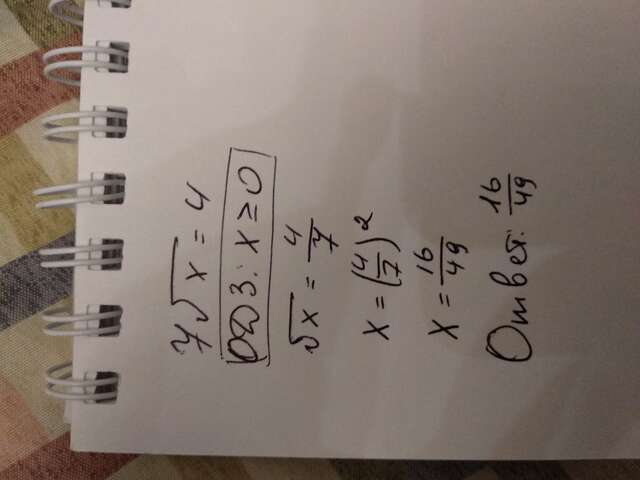 7√x = 4
ОДЗ: x ≥ 0
√x = 4/7
x = (4/7)²
x = 16/49
Ответ: 16/49